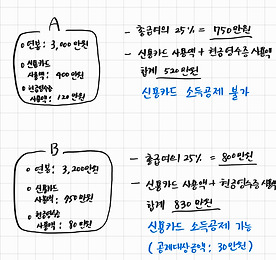 A
○ 연봉: 3,000만원
○ 신용카드
사용액: 400만원
○ 현금영수증
사용액: 120만원
- 총급여의 25% = 750만원
- 신용카드 사용액 + 현금영수증 사용액
합계 520만원
신용카드 소득공제 불가
B
○ 연봉: 3,200만원
○ 신용카드
사용액: 750만원
○ 현금영수증
사용액: 80만원
- 총급여의 25% = 800만원
- 신용카드 사용액 + 현금영수증 사용액
합계 830만원
신용카드 소득공제 가능
(공제대상금액: 30만원)